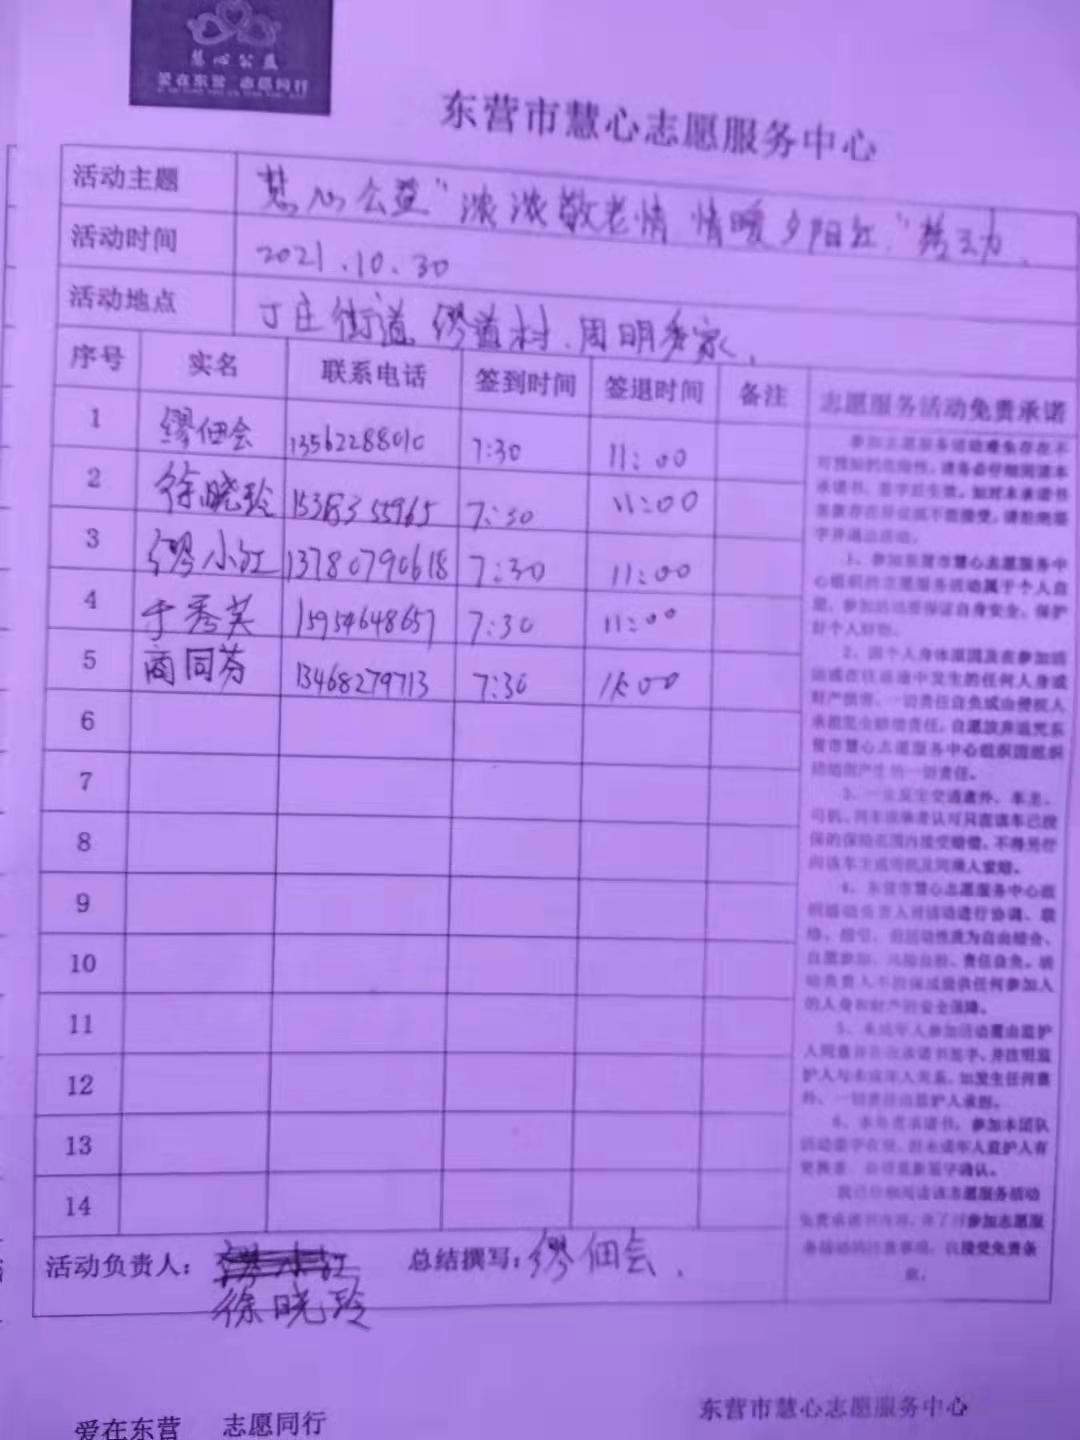 慧心公益
爱在东营 志愿同行
东营市慧心志愿服务中心
活动主题 慧心公益"浓浓敬老情 情暖夕阳红"活动.
活动时间 2021.10.30
活动地点 丁庄街道 缪道村.周明 家.
序号 实名 联系电话 签到时间 签退时间 备注 志愿服务活动免责承诺
1 缪佃会 13562288010 7:30 11:00
2 徐晓玲 15383355965 7:30 11:00
3 缪小红 13780790618 7:30 11:00
4 于秀英 15954648657 7:30 11:00
5 商同芬 13468279713 7:30 11:00
6
7
8
9
10
11
12
13
14
参加志愿服务活动难免存在不
可预知的危险性,请务必仔细阅读本
承诺书,签字后生效。如对本承诺书
条款存在异议或不能接受,请拒绝签
字并退出活动。
1、参加东营市慧心志愿服务中
心组织的志愿服务活动属于个人自
愿,参加活动要保证自身安全,保护
好个人财物。
2、因个人身体原因及在参加活
动或在往返途中发生的任何人身或
财产损害,一切责任自负或由侵权人
承担完全赔偿责任,自愿放弃追究东
营市慧心志愿服务中心组织因组织
活动而产生的一切责任。
3、一旦发生交通意外,车主、
司机、同车乘坐者认可只在该车已投
保的保险范围内接受赔偿,不得另行
向该车主或司机及同乘人索赔。
4、东营市慧心志愿服务中心组
织活动负责人对活动进行协调、联
络、指引,但活动性质为自由结合、
自愿参加、风险自担、责任自负。活
动负责人不担保或提供任何参加人
的人身和财产的安全保障。
5、未成年人参加活动需由监护
人同意并在此承诺书签字,并注明监
护人与未成年人关系,如发生任何意
外,一切责任由监护人承担。
6、本免责承诺书,参加本团队
更换者,必须重新签字确认。
我已仔细阅读该志愿服务活动
免责承诺书内容,并了解参加志愿服
务活动的注意事项,自接受免责条
款。
活动负责人: 缪小红 总结撰写:缪佃会.
徐晓玲
爱在东营 志愿同行 东营市慧心志愿服务中心